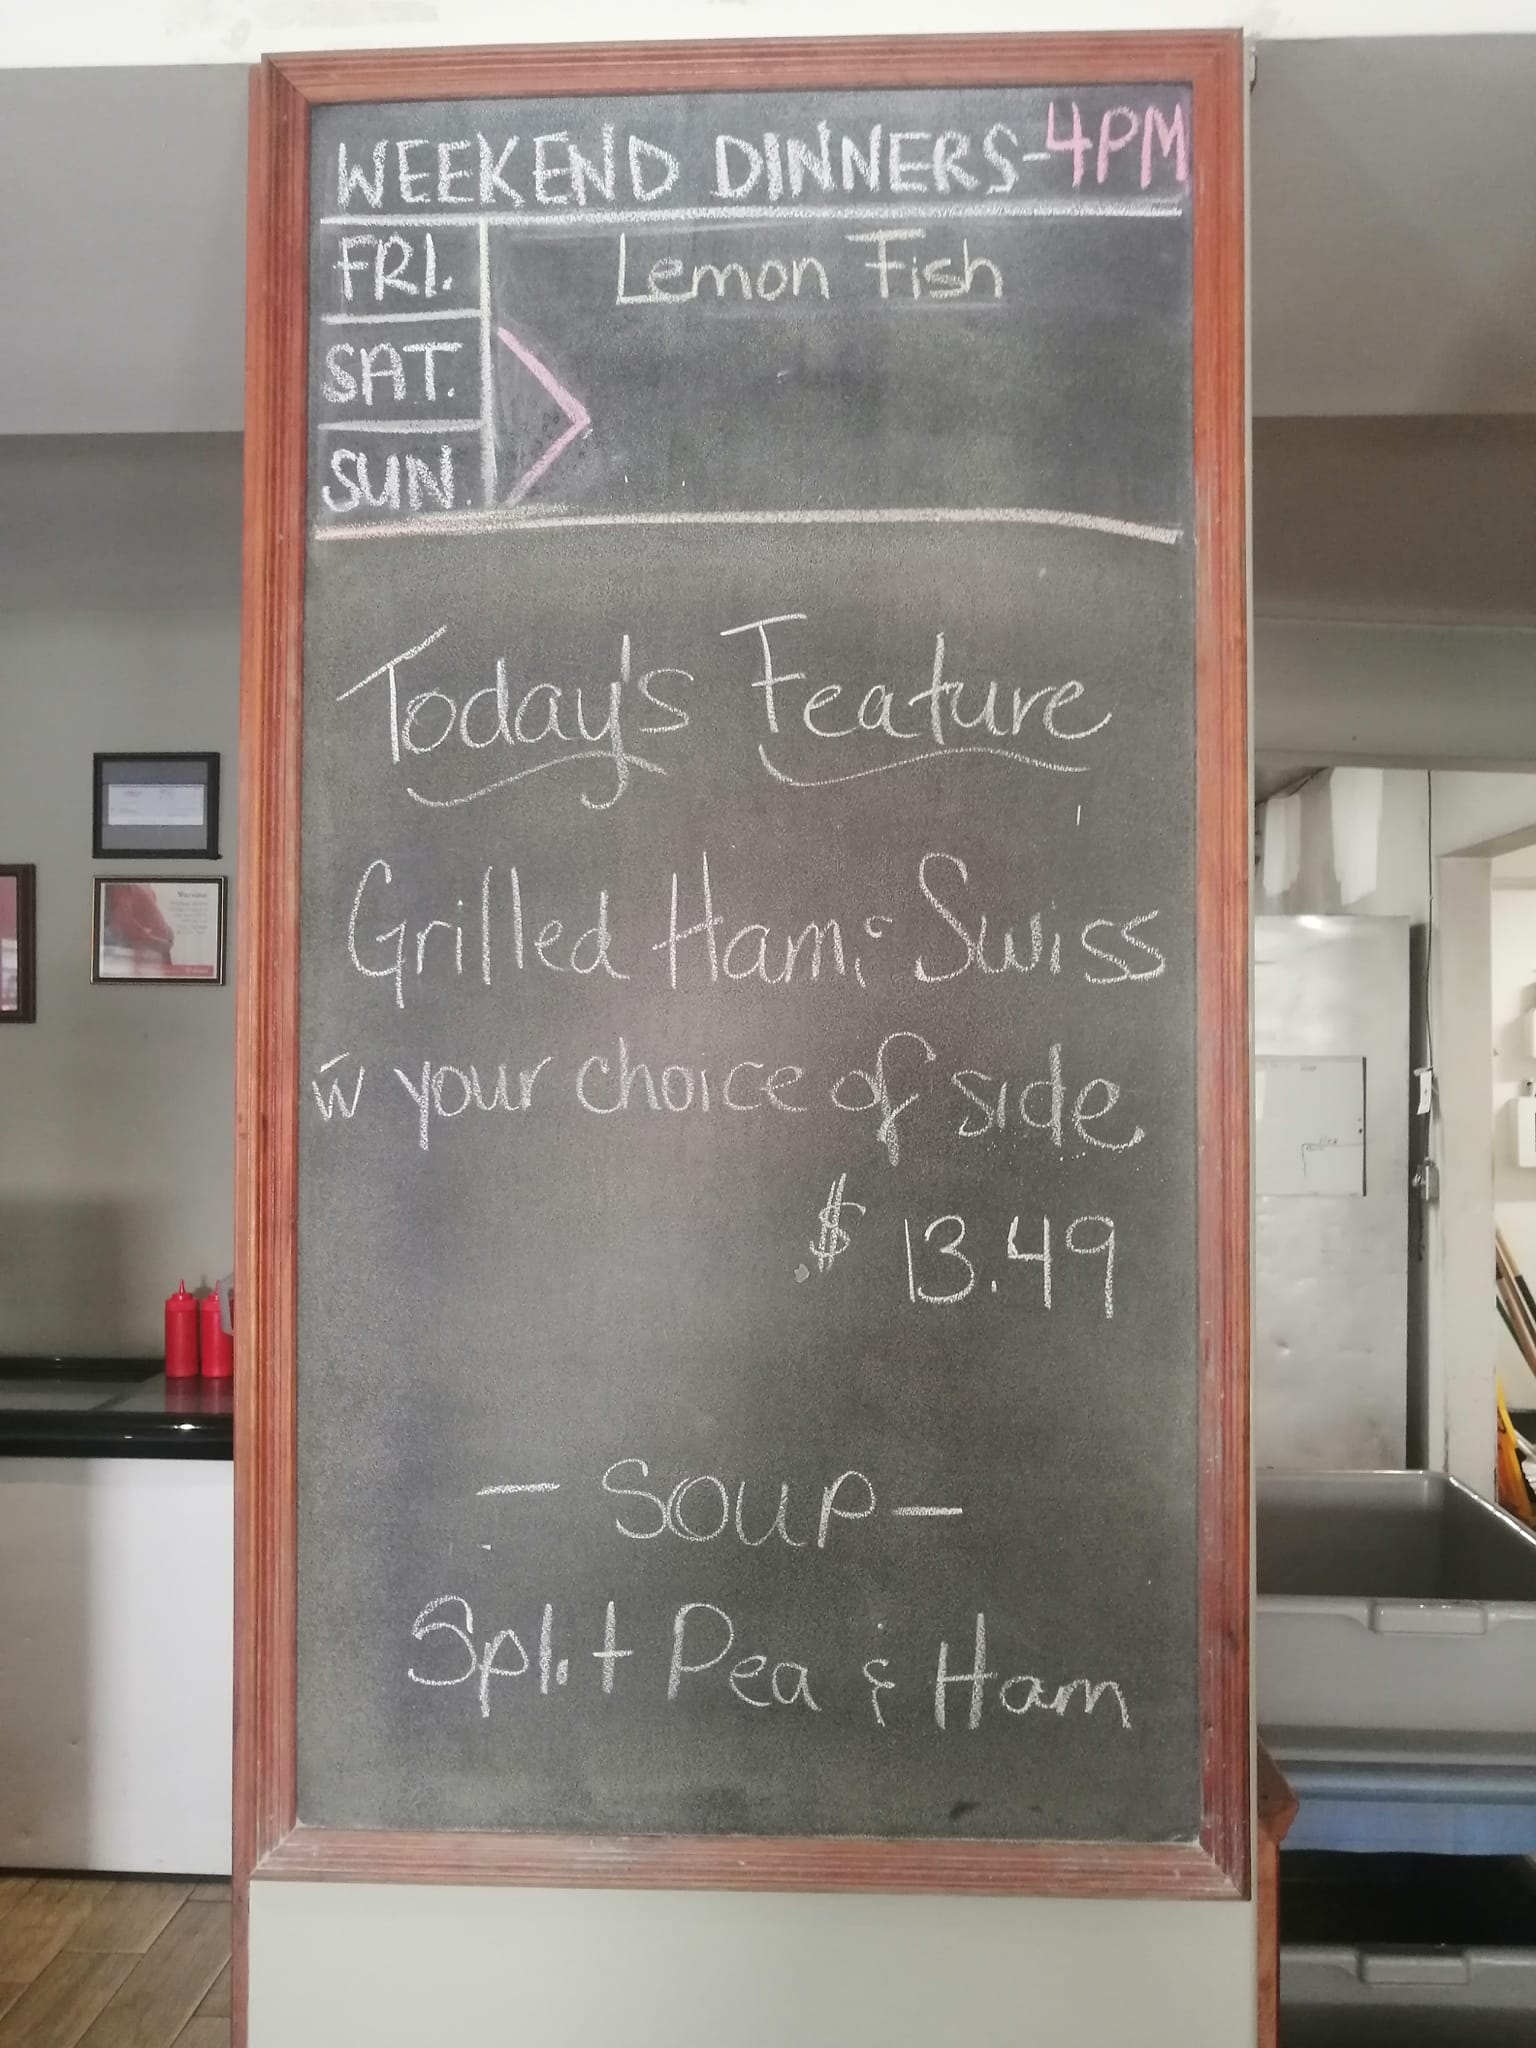 WEEKEND DINNERS-4PM
FRI. Lemon Fish
SAT.
SUN.
Today's Feature
Grilled Ham & Swiss
w̄ your choice of side
$ 13.49
- SOUP -
Split Pea & Ham
Warning